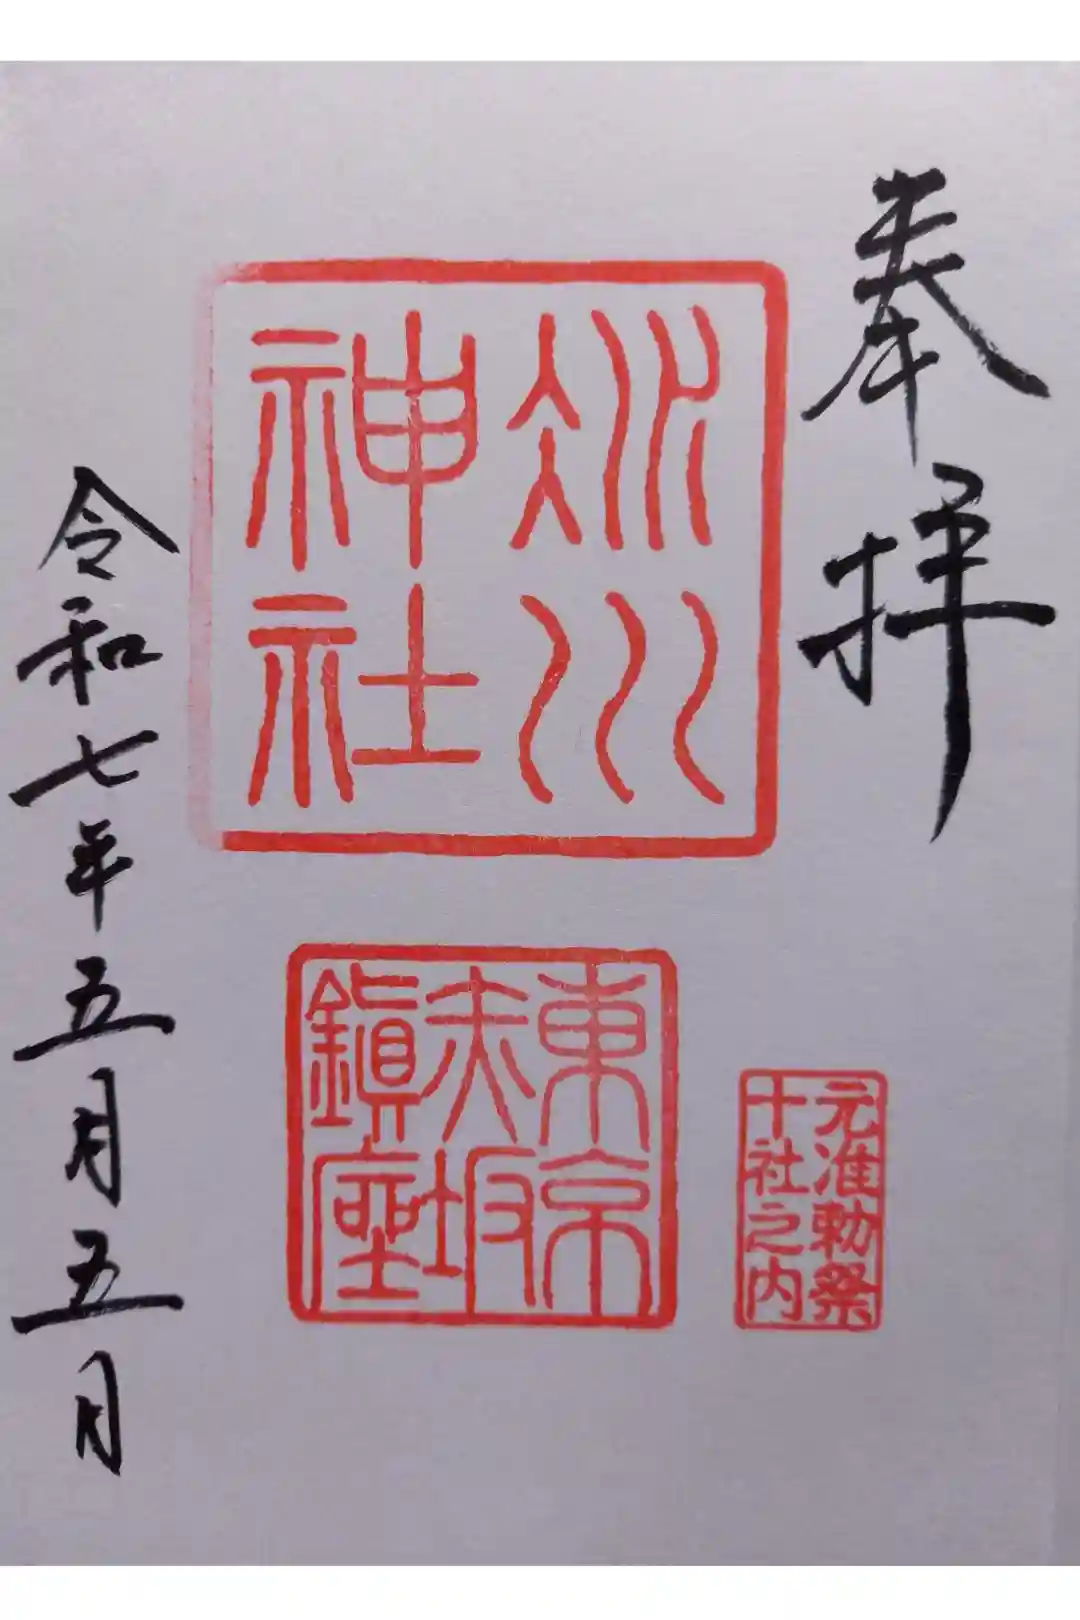 奉拝
氷川
神社
東京
赤坂
鎭座
元准勅祭
十社之内
令和七年五月五日